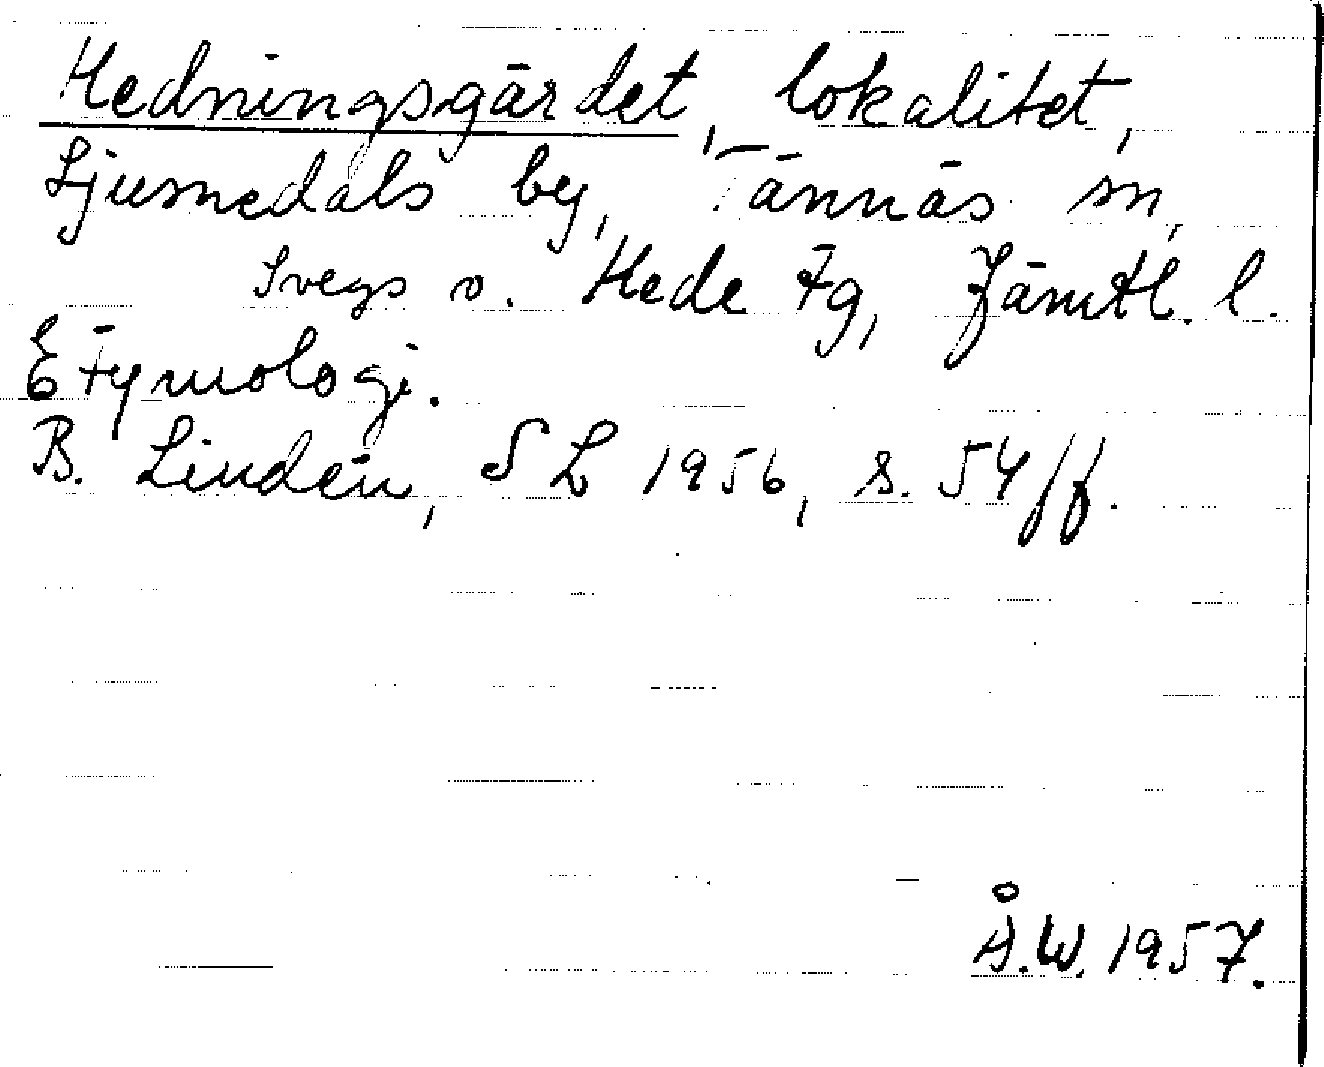 Hedningsgärdet, lokalitet,
Ljusnedals by, Tännäs sn,
Svegs o. Hede tg, Jämtl. l.
Etymologi.
B. Lindén, SL 1956, s. 54 ff.
Å.W. 1957.